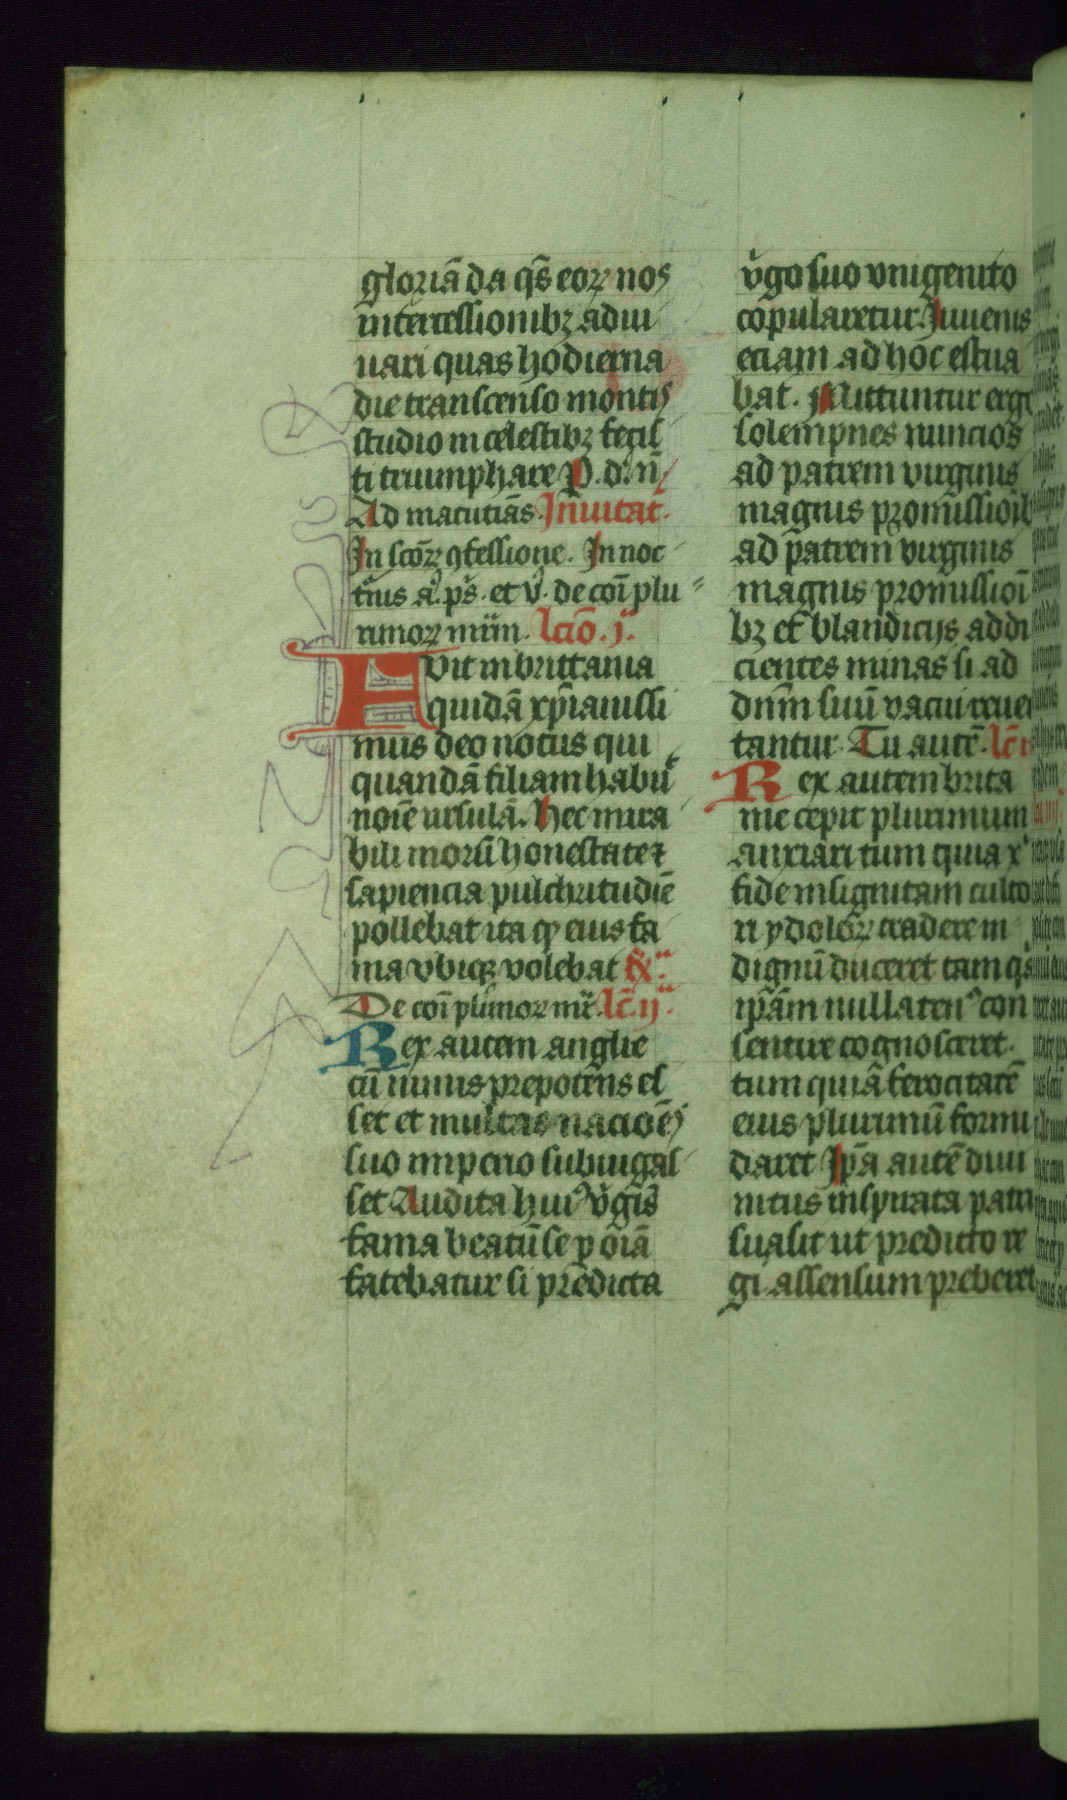 gloriā da qs̄ eorꝝ nos
int̄ercessionibꝫ adiu
uari quas hodierna
die transcenso montis
studio in celestibꝫ fecis
ti triumphare P. d. n̄
Ad matutīas Inuitat̄.
In sc̄orꝝ ꝯfessione. In noc
t̓nis a. ps̄. et v̓. de coī plu
rimorꝝ mr̄m. lcīo. j.
Fvit in brittania
quidā xp̄ianissi
mus deo notus qui
quandā filiam habu͛
noīe ursulā. Hec mira
bili morū honestate ⁊
sapiencia pulchritudīe
pollebat ita ꝙ eius fa
ma vbiqꝫ volebat Rx
De coī plīmorꝝ mr̄. lc̄. ij
Rex autem anglie
cū nimis prepotens es
set et multas nacioēs
suo imperio subiugas
set Audita hui᷒ v̓gis̄
fama beatū se ꝑ oīa
fatebatur si predicta
v̓go suo vnigenito
cōpularetur. Iuuenis
eciam ad hoc estua
bat. Mittuntur ergo
solempnes nuncios
ad patrem virginis
magnis promissioīb
ad patrem virginis
magnis promissioī
bꝫ et̄ blandicijs addi
cientes minas si ad
dnm̄ suū vacui reuer
tantur. Tu autē. lc̄
Rex autem brita
nie cepit plurimum
anxiari tum quia x
fide insignitam culto
ri ydolorꝝ tradere in
dignū duceret tam qa
ip̄am nullaten᷒ con
sentire cognosceret.
tum quiā ferocitatē
eius plurimū formi
daret Ip̄a autē diui
nitus inspirata patri
suasit ut predicto re
gi assensum preberet